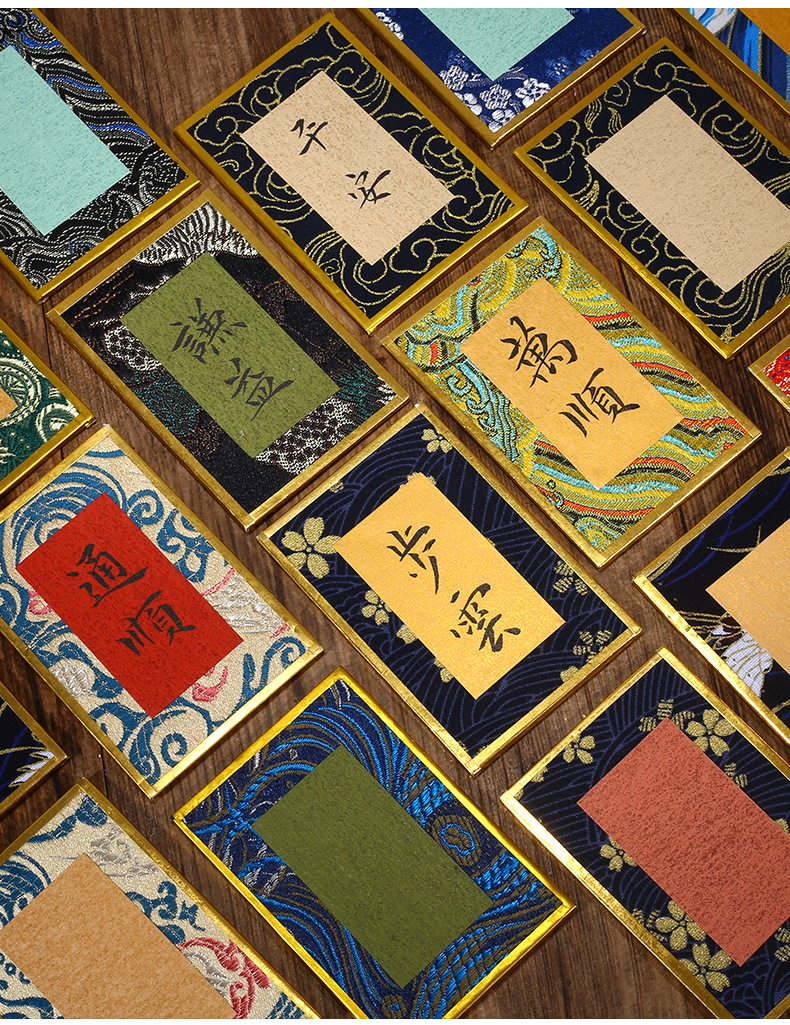 平安
謙益
萬順
通順
步雲